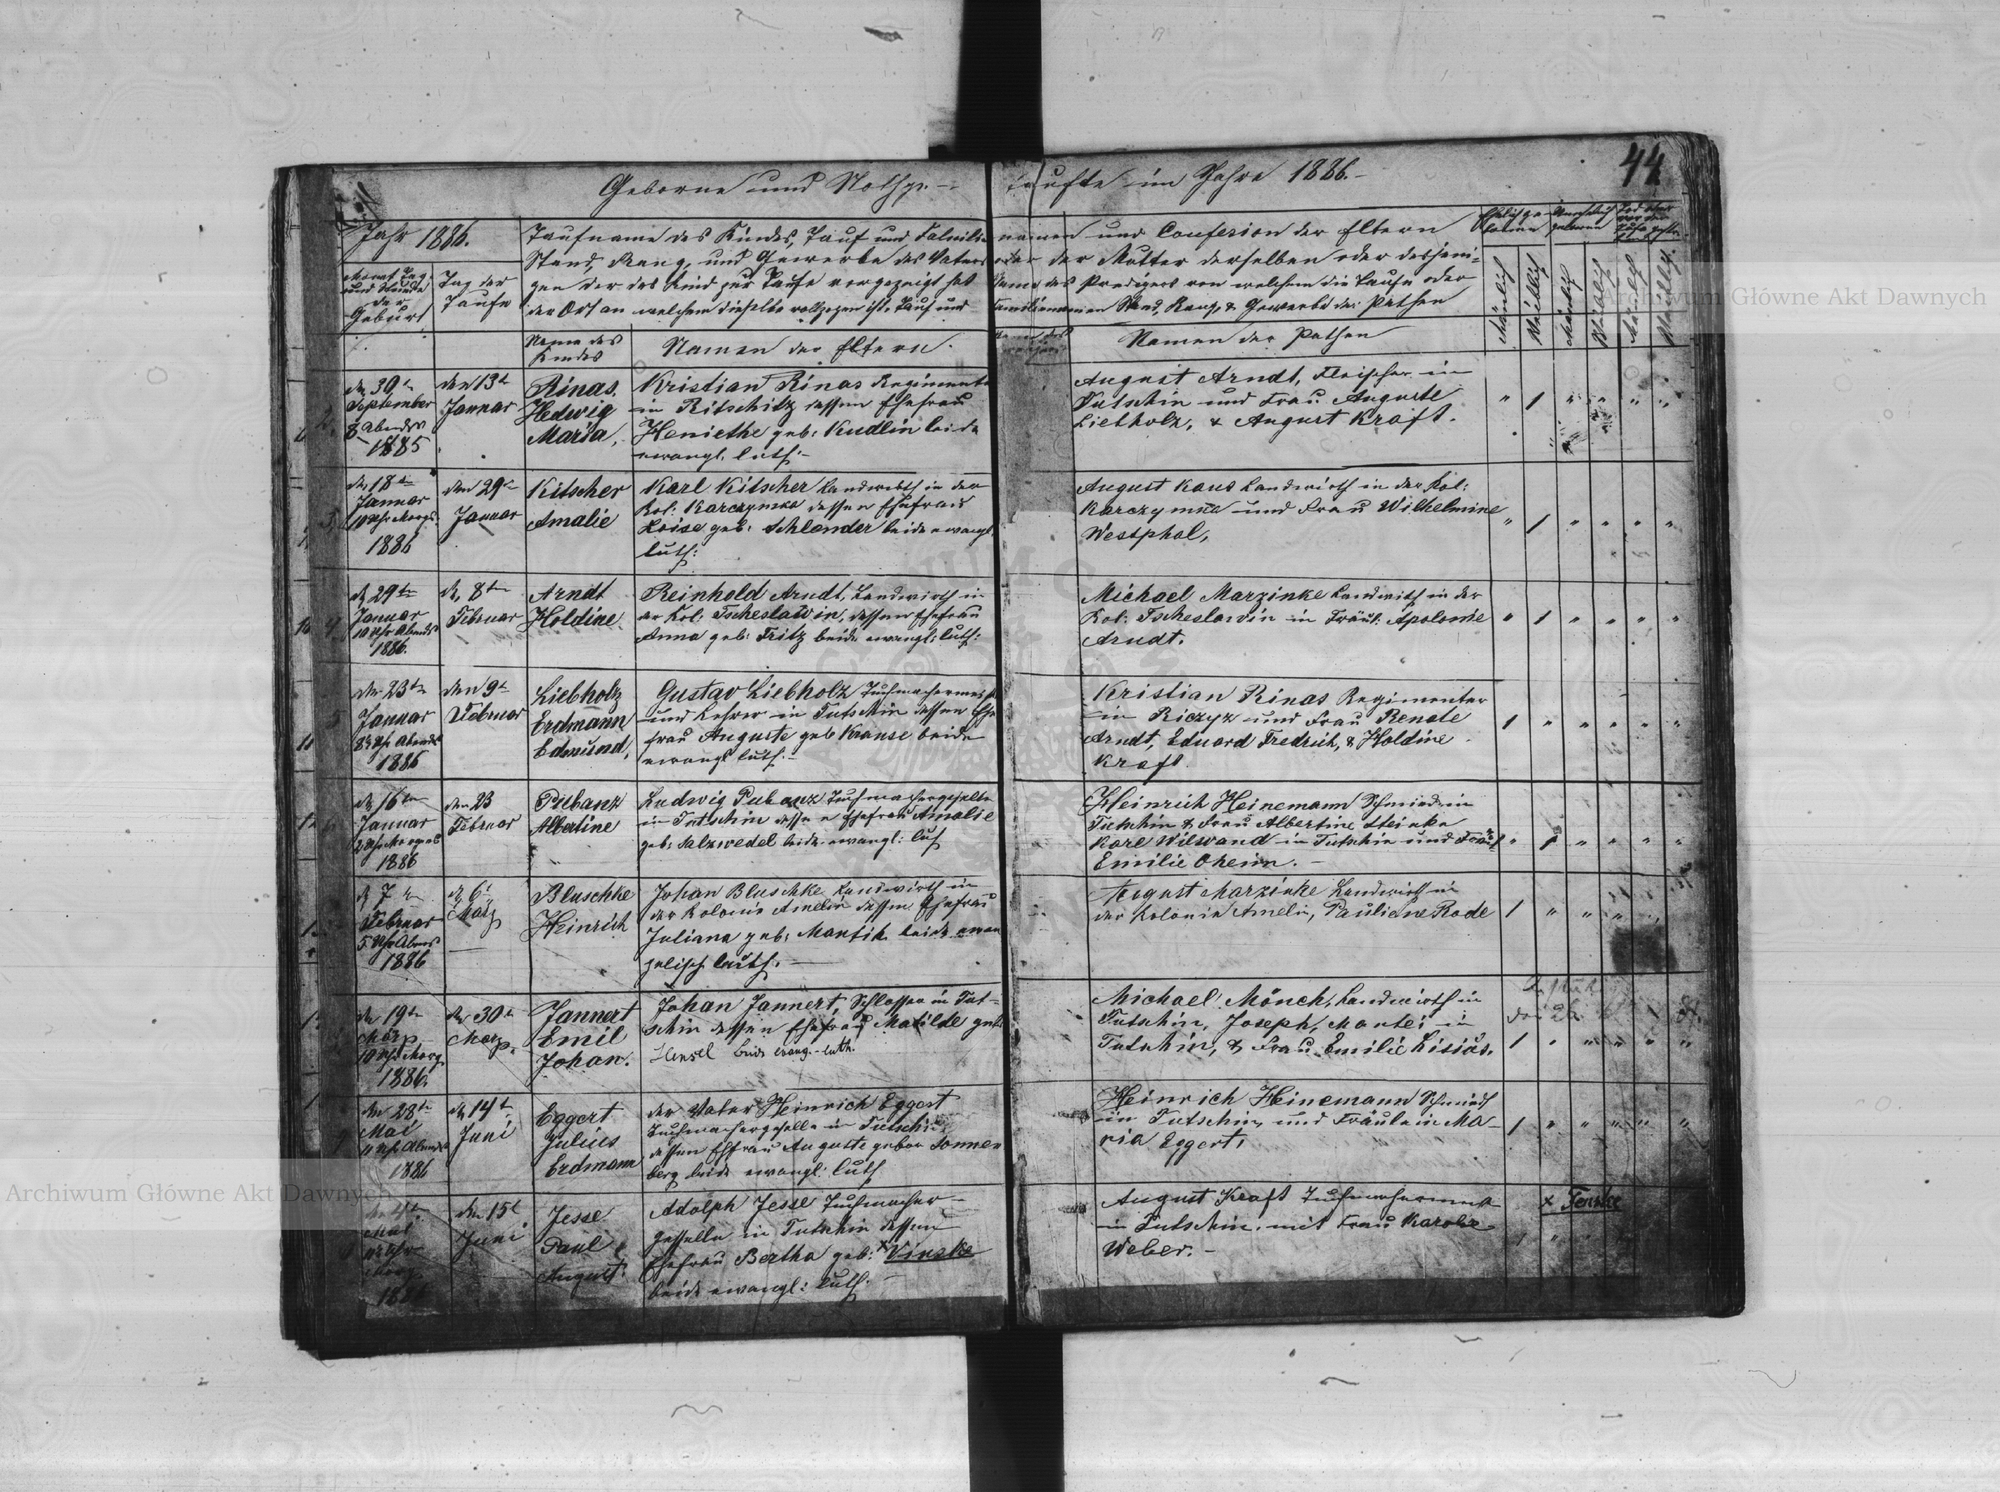 Geborne und Nothge-
taufte im Jahre 1886.-
44
Jahr 1886.
Taufname des Kindes, Tauf und Familien
namen und Confession der Eltern
Stand, Rang, und Gewerbe des Vaters
oder der Mutter derselben oder desjeni-
gen der das Kind zur Taufe vorgezeigt hat
Name des Predigers von welchem die Taufe oder
der Ort an welchem dieselbe vollzogen ist, Tauf und
Familiennamen Stand, Rang, & Gewerbe der Pathen
Monat Tag
und Stunde
der
Geburt
Tag der
Taufe
Name des
Kindes
Namen der Eltern.
Namen der Pathen
Männlich
Weiblich
Männlich
Weiblich
Männlich
Weiblich
2.
den 30tn
September
8 Abends
1885
den 13tn
Januar
Rinas
Hedwig
Maria,
Kristian Rinas Regimenter
in Ritschitz dessen Ehefrau
Heniethe geb: Kudlin beide
evangl. luth:-
August Arndt, Fleischer in
Tutschin und Frau Auguste
Liebholz, & August Kraft.
3.
den 18tn
Januar
10 Uhr Morgs.
1886
den 29tn
Januar
Kitscher
Amalie
Karl Kitscher Landwirth in der
Kol: Karczymka dessen Ehefrau
Loise geb: Schlender beide evangl
luth:
August Kaus Landwirth in der Kol:
Karczymka und Frau Wilhelmine
Westphal,
4.
d. 29tn
Januar
10 Uhr Abends
1886.
d. 8tn
Februar
Arndt
Holdine
Reinhold Arndt, Landwirth in
der Kol: Tscheslawin, dessen Ehefrau
Anna geb: Fritz beide evangl: luth:
Michael Marzinke Landwirth in der
Kol: Tscheslawin in Fräul. Apolonie
Arndt.
5
den 23tn
Januar
8½ Uhr Abends
1886
den 9tn
Februar
Liebholz
Erdmann
Edmund,
Gustav Liebholz Tuchmachermeist
und Lehrer in Tutschin dessen Ehe
frau Auguste geb Krause beide
evangl luth:-
Kristian Rinas Regimenter
in Riczyz und Frau Renate
Arndt, Eduard Fredrich, & Holdine
Kraft
d. 16tn
Januar
2 Uhr Morgens
1886
den 23
Februar
Pubanz
Albertine
Ludwig Pubanz Tuchmachergeselle
in Tutschin dessen Ehefrau Amalie
geb: Salzwedel beide evangl: luth
Heinrich Heinemann Schmied in
Tutschin & Frau Albertine Steinke
Karl Wiswand in Tutschin und Fräul
Emilie Oheim. -
d. 7tn
Februar
5 Uhr Abens
1886
d. 6t
März
Bluschke
Heinrich
Johan Bluschke Landwirth in
der Kolonie Amelin dessen Ehefrau
Juliana geb: Mantik beide evan
gelisch luth. -
August Marzinke Landwirth in
der Kolonie Amelin, Pauliene Rode
den 19tn
März
10 Uhr Morg
1886.
den 30tn
März.
Jannert
Emil
Johan.
Johan Jannert, Schlosser in Tut-
schin dessen Ehefrau Matilde geb:
Hensel beide evang.-luth.
Michael Mönch, Landwirth in
Tutschin, Joseph, Mantei in
Tutschin, & Frau Emilie Lisiäs.
9
den 28tn
Mai
11 Uhr Abends
1886
d. 14t
Juni
Eggert
Julius
Erdmann
der Vater Heinrich Eggert
Tuchmachergeselle in Tutschin
dessen Ehfrau Auguste gebor Sonnen
berg beide evangl: luth
Heinrich Heinemann Schmied
in Tutschin, und Fräulein Ma-
ria Eggert,
den 4tn
Mai
Uhr
Morg.
1886
den 15t
Juni
Jesse
Paul
August.
Adolph Jesse Tuchmacher-
geselle in Tutschin dessen
Ehefrau Bertha geb: x Vinske
beide evangl: luth. -
August Kraft Tuchmacher
in Tutschin. mit Frau Karolie
Weber. -
x Fenske
Archiwum Główne Akt Dawnych
Archiwum Główne Akt Dawnych